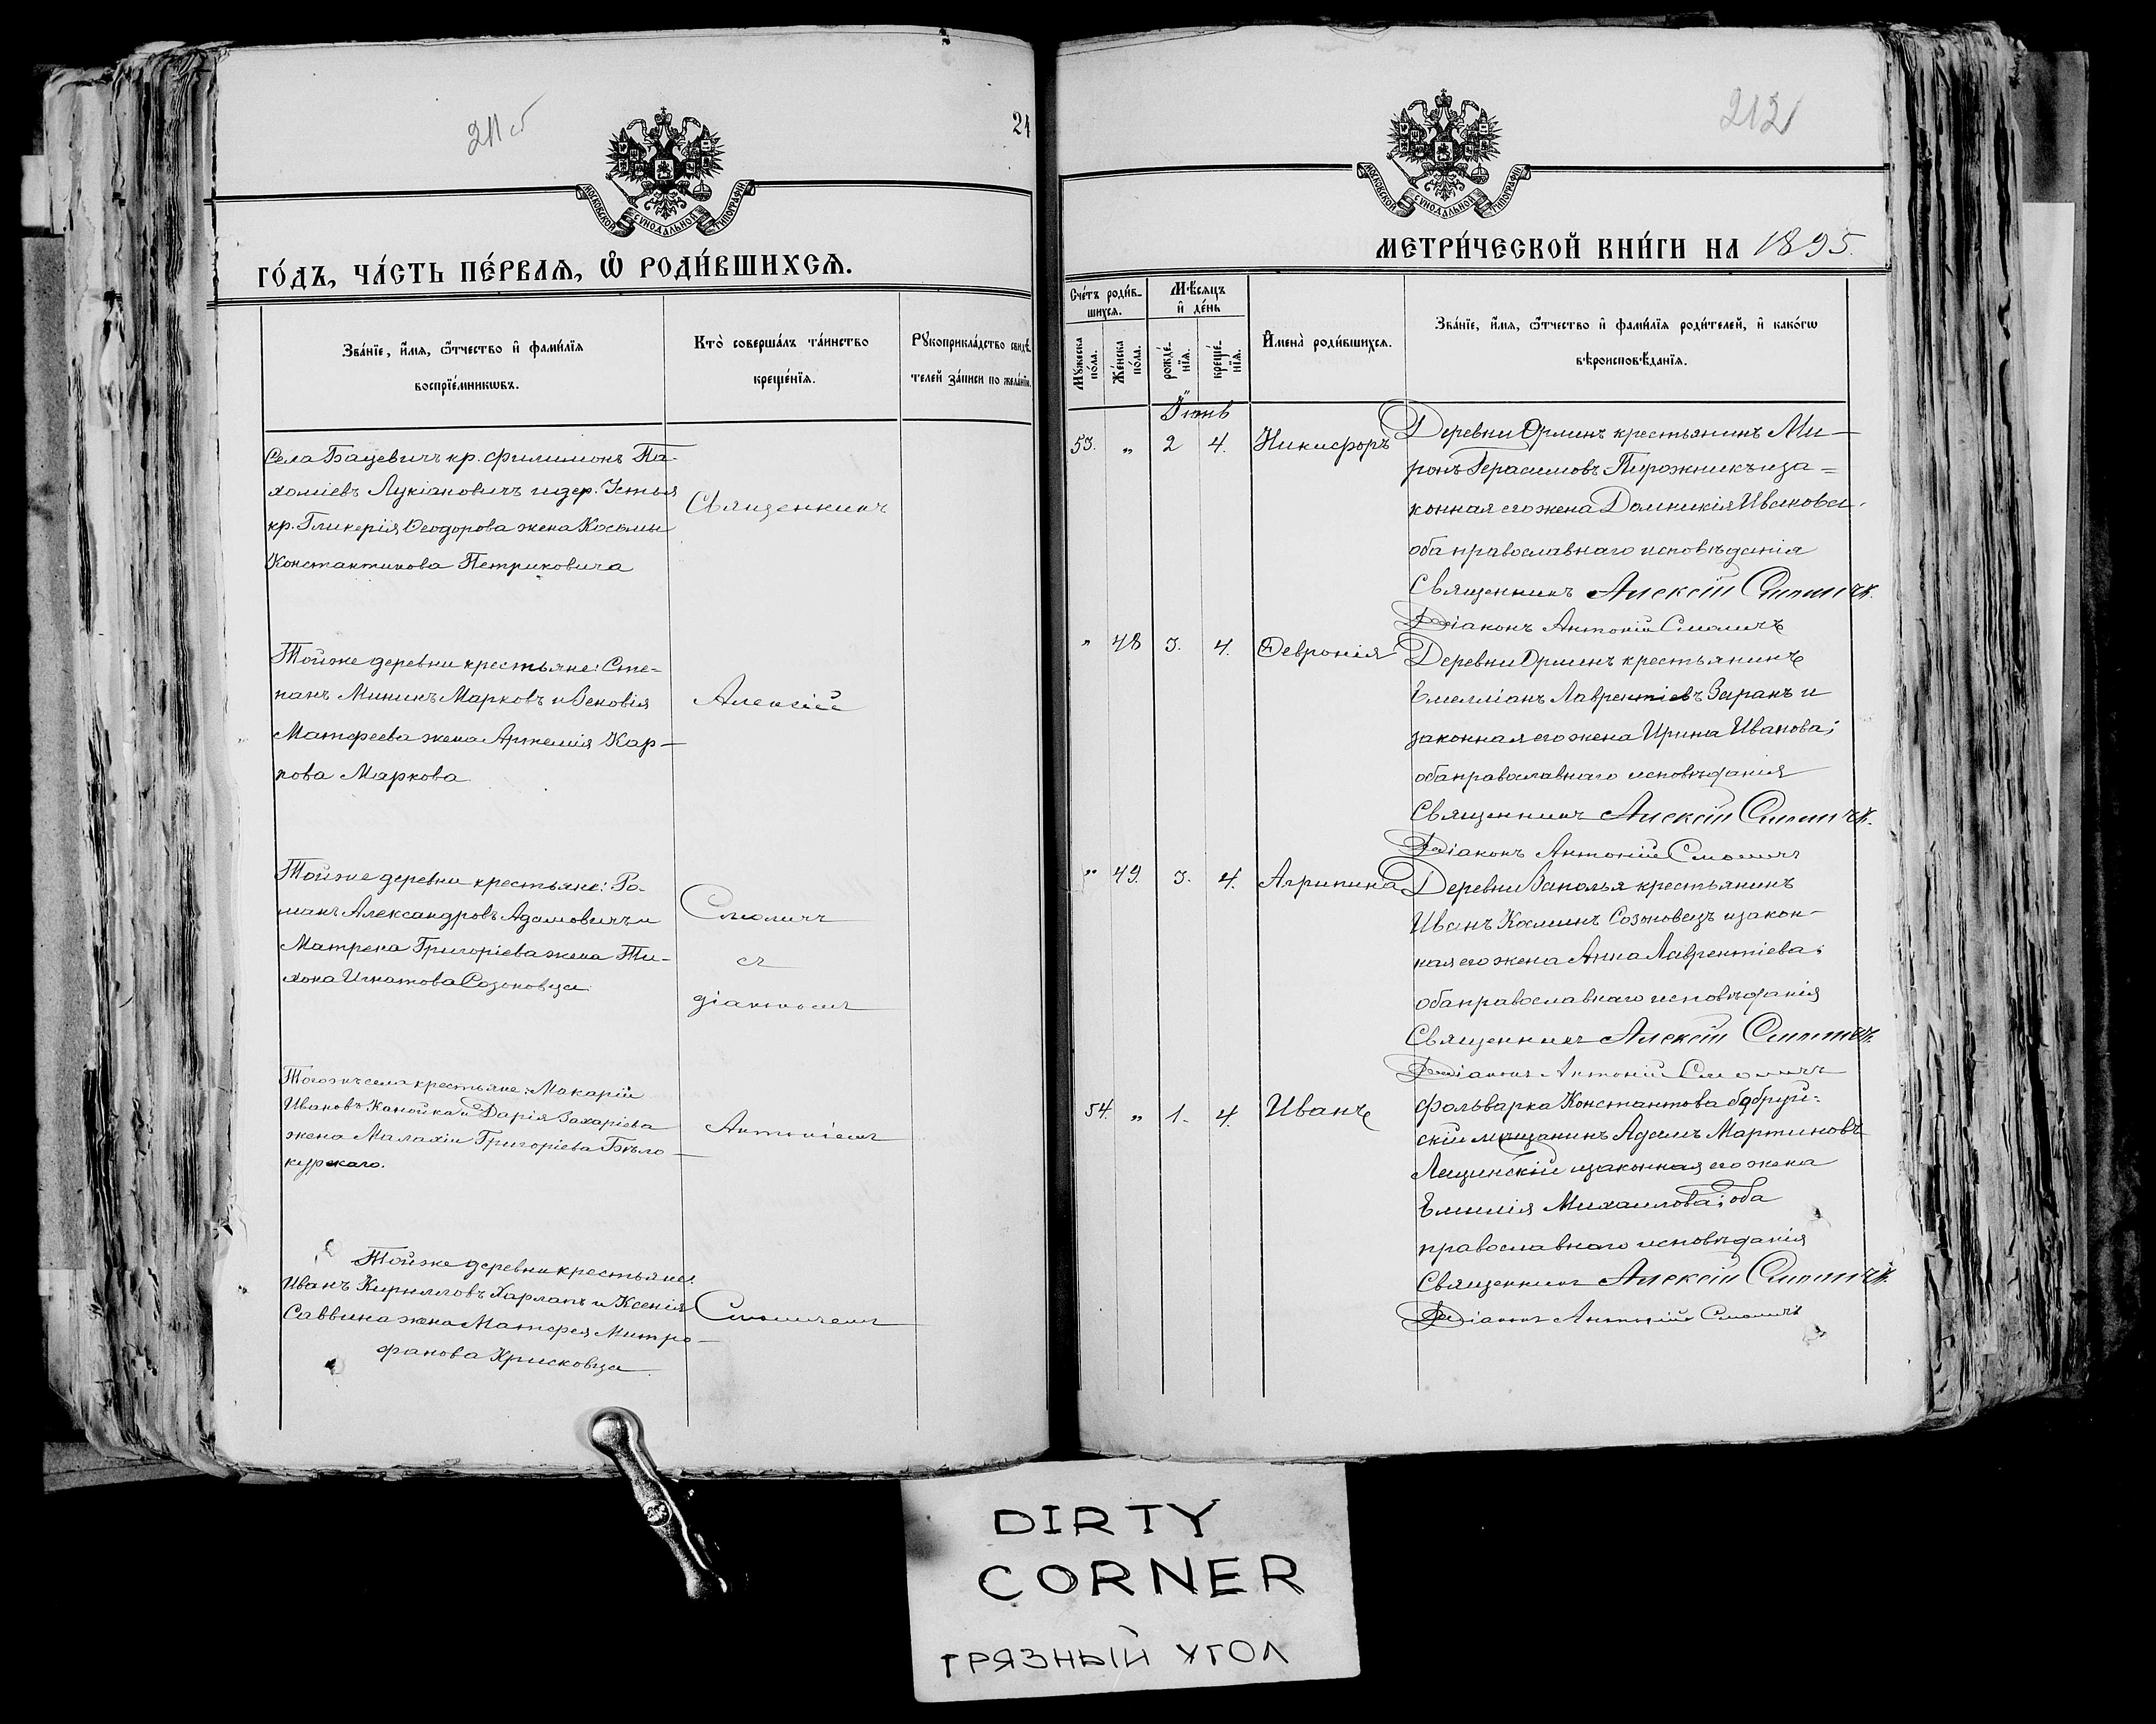 211 об
24
МОСКОВСКОЙ СѴНОДАЛЬНОЙ ТИПОГРАФІИ
ГО́ДЪ, ЧА́СТЬ ПЕ́РВАѦ, Ѡ҆ РОДИ́ВШИХСѦ.
Зва́нїе, и҆́мѧ, ѻ҆́тчество и҆ фамі́лїѧ
воспрїе́мникѡвъ.
Кто̀ соверша́лъ та́инство
креще́нїѧ.
Рꙋкоприкла́дство свидѣ́-
телей за́писи по жела́нїю.
Села Бацевичъ кр. Филимонъ Па-
хоміевъ Лукіановичъ и дер. Устья
кр. Гликерія Ѳеодорова жена Косьмы
Константинова Петриковича
Священникъ
Тойже деревни крестьяне: Сте-
панъ Мининъ Марковъ и Зеновія
Матфеева жена Артемія Кар-
пова Маркова
Алексій
Тойже деревни крестьяне: Ро-
манъ Александровъ Адамовичъ и
Матрена Григоріева жена Ти-
хона Игнатова Созоновца
Смоличъ
съ
діакономъ
Тогожъ села крестьяне: Макарій
Ивановъ Канойка и Дарія Захаріева
жена Малахіи Григоріева Бѣло-
курскаго.
Антоніемъ
Тойже деревни крестьяне:
Иванъ Кирилловъ Харлапъ и Ксенія
Саввина жена Матфея Митро-
фанова Крисковца
Смоличемъ
212
МОСКОВСКОЙ СѴНОДАЛЬНОЙ ТИПОГРАФІИ
МЕТРИ́ЧЕСКОЙ КНИ́ГИ НА 1895.
Сче́тъ роди́в-
шихсѧ.
Мꙋ́жеска по́ла.
Же́нска по́ла.
Мѣ́сѧцъ
и҆ де́нь
рожде́-нїѧ.
креще́-нїѧ.
И҆мена̀ роди́вшихсѧ.
Зва́нїе, и҆́мѧ, ѻ҆́тчество и҆ фамі́лїѧ роди́телей, и҆ како́гѡ
вѣроисповѣ́данїѧ.
Іюнь
53. „ 2 4. Никифоръ
Деревни Орлинъ крестьянинъ Ми-
ронъ Герасимовъ Пирожникъ и за=
конная его жена Домникія Иванова,
оба православнаго исповѣданія
Священникъ Алексій Смоличъ.
Діаконъ Антоній Смоличъ
„ 48 3. 4. Февронія
Деревни Орлинъ крестьянинъ
Емелліанъ Лаврентіевъ Заранъ и
законная его жена Ирина Иванова;
оба православнаго исповѣданія
Священникъ Алексій Смоличъ.
Діаконъ Антоній Смоличъ
„ 49. 3. 4. Агрипина
Деревни Заполья крестьянинъ
Иванъ Косминъ Созоновецъ и закон-
ная его жена Анна Лаврентіева;
оба православнаго исповѣданія
Священникъ Алексій Смоличъ.
Діаконъ Антоній Смоличъ
54. „ 1. 4. Иванъ
Фольварка Константова бобруй-
скій мѣщанинъ Адамъ Мартиновъ
Лещинскій и законная его жена
Емилія Михаилова; оба
православнаго исповѣданія
Священникъ Алексій Смоличъ.
Діаконъ Антоній Смоличъ
DIRTY
CORNER
ГРЯЗНЫЙ УГОЛ